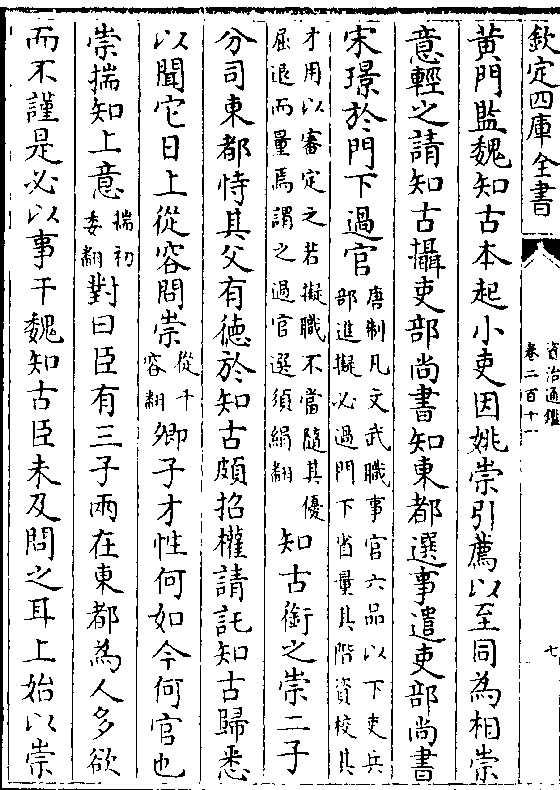 欽定四庫全書
資治通鑑
卷二百十一
七
黄門監魏知古本起小吏因姚崇引薦以至同為相崇
意輕之請知古攝吏部尚書知東都選事遣吏部尚書
宋璟於門下過官唐制凡文武職事官六品以下吏兵
部進擬必過門下省量其階資校其
才用以審定之若擬職不當隨其優
屈退而量焉謂之過官選須絹翻知古銜之崇二子
分司東都恃其父有德於知古頗招權請託知古歸悉
以聞它日上從容問崇從千
容翻卿子才性何如今何官也
崇揣知上意揣初
委翻對曰臣有三子兩在東都為人多欲
而不謹是必以事干魏知古臣未及問之耳上始以崇